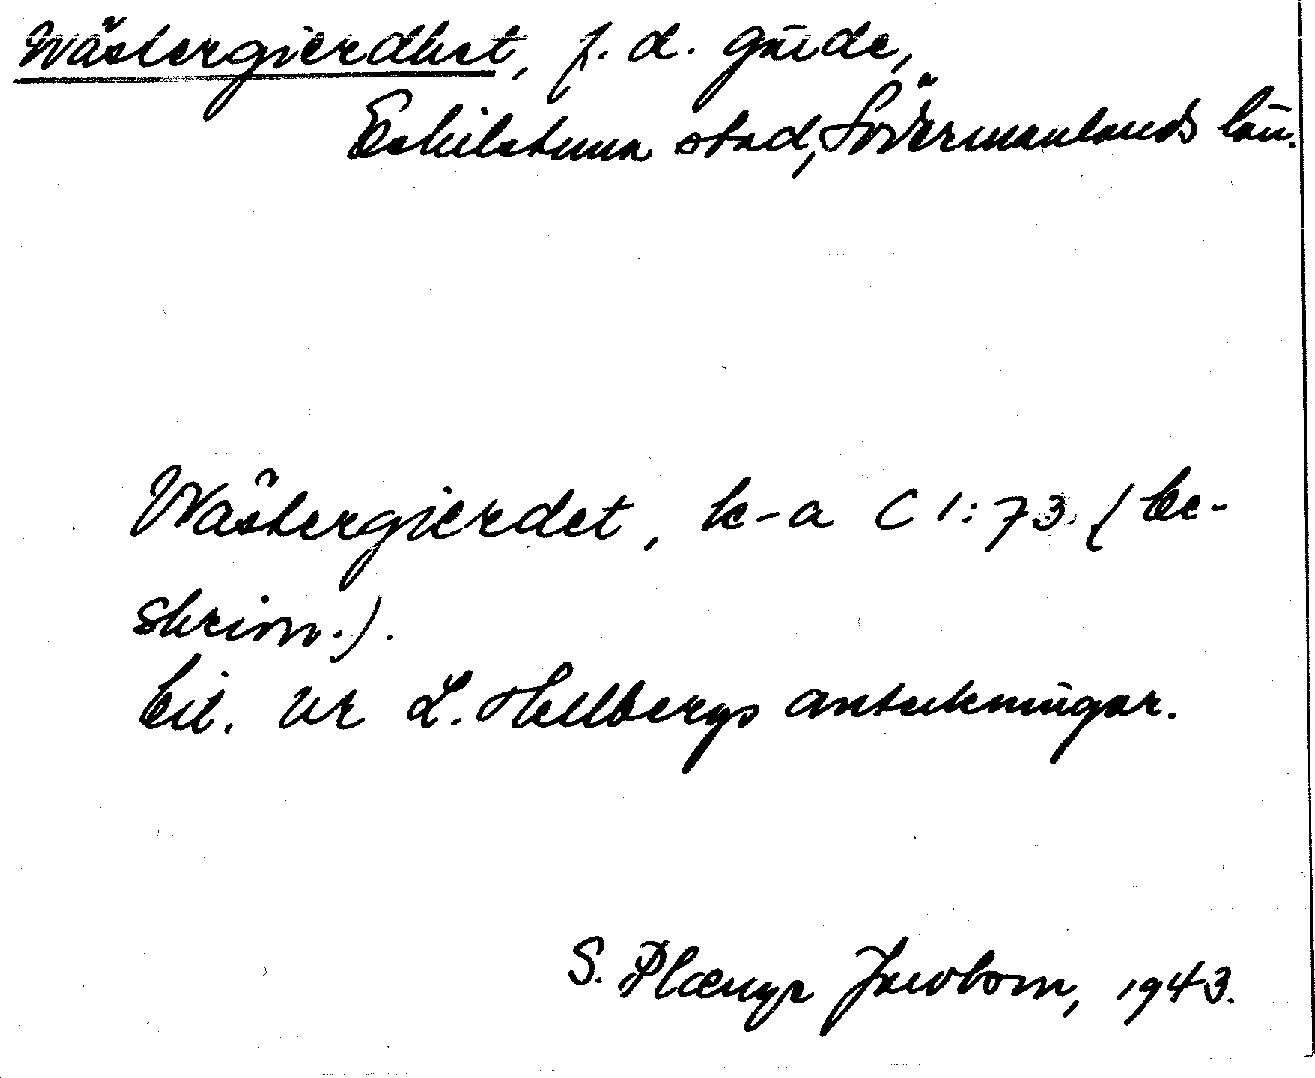 Wästergierdhet, f. d. gärde,
Eskilstuna stad, Södermanlands län.
Wästergierdet, k-a C 1:73 (be-
skrivn.).
Cit. ur L. Hellbergs anteckningar.
S. Plænge Jacobson, 1943.